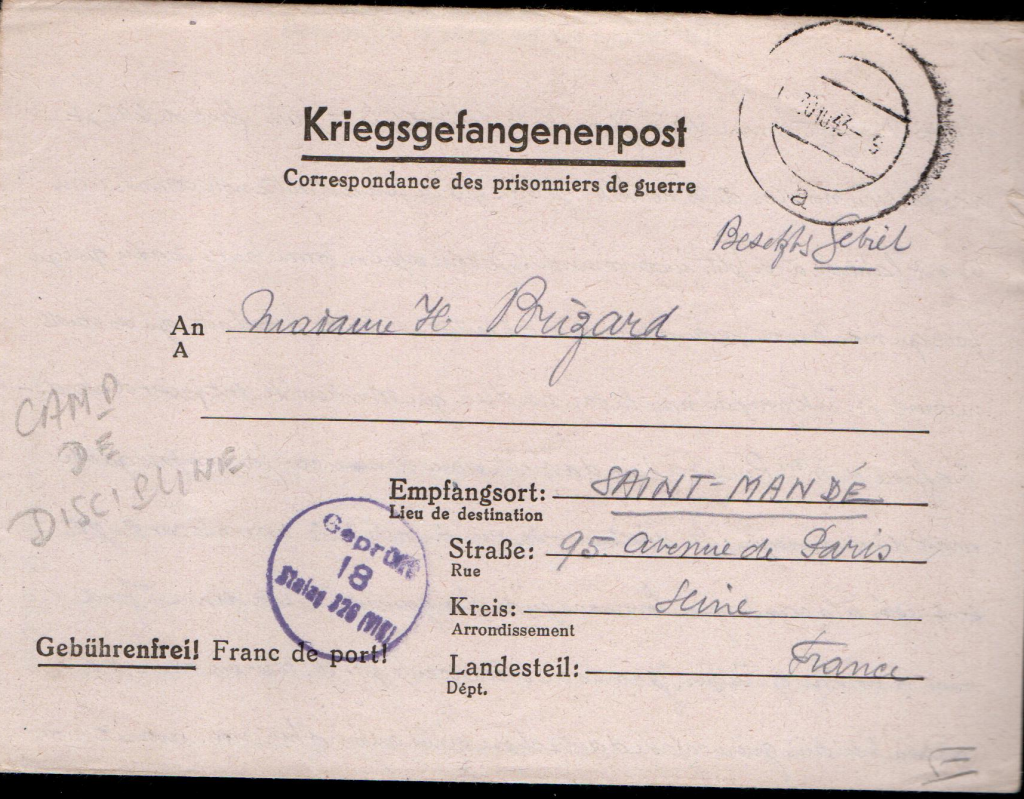 Kriegsgefangenenpost
Correspondance des prisonniers de guerre
20.10.43- 9
a
Besetzts Gebiet
An Madame H. Brizard
A
CAMP
DE
DISCIPLINE
Empfangsort: SAINT-MANDÉ
Lieu de destination
Straße: 95. avenue de Paris
Rue
Kreis: Seine
Arrondissement
Landesteil: France
Dépt.
Geprüft
18
Stalag 326 (VIK)
Gebührenfrei! Franc de port!